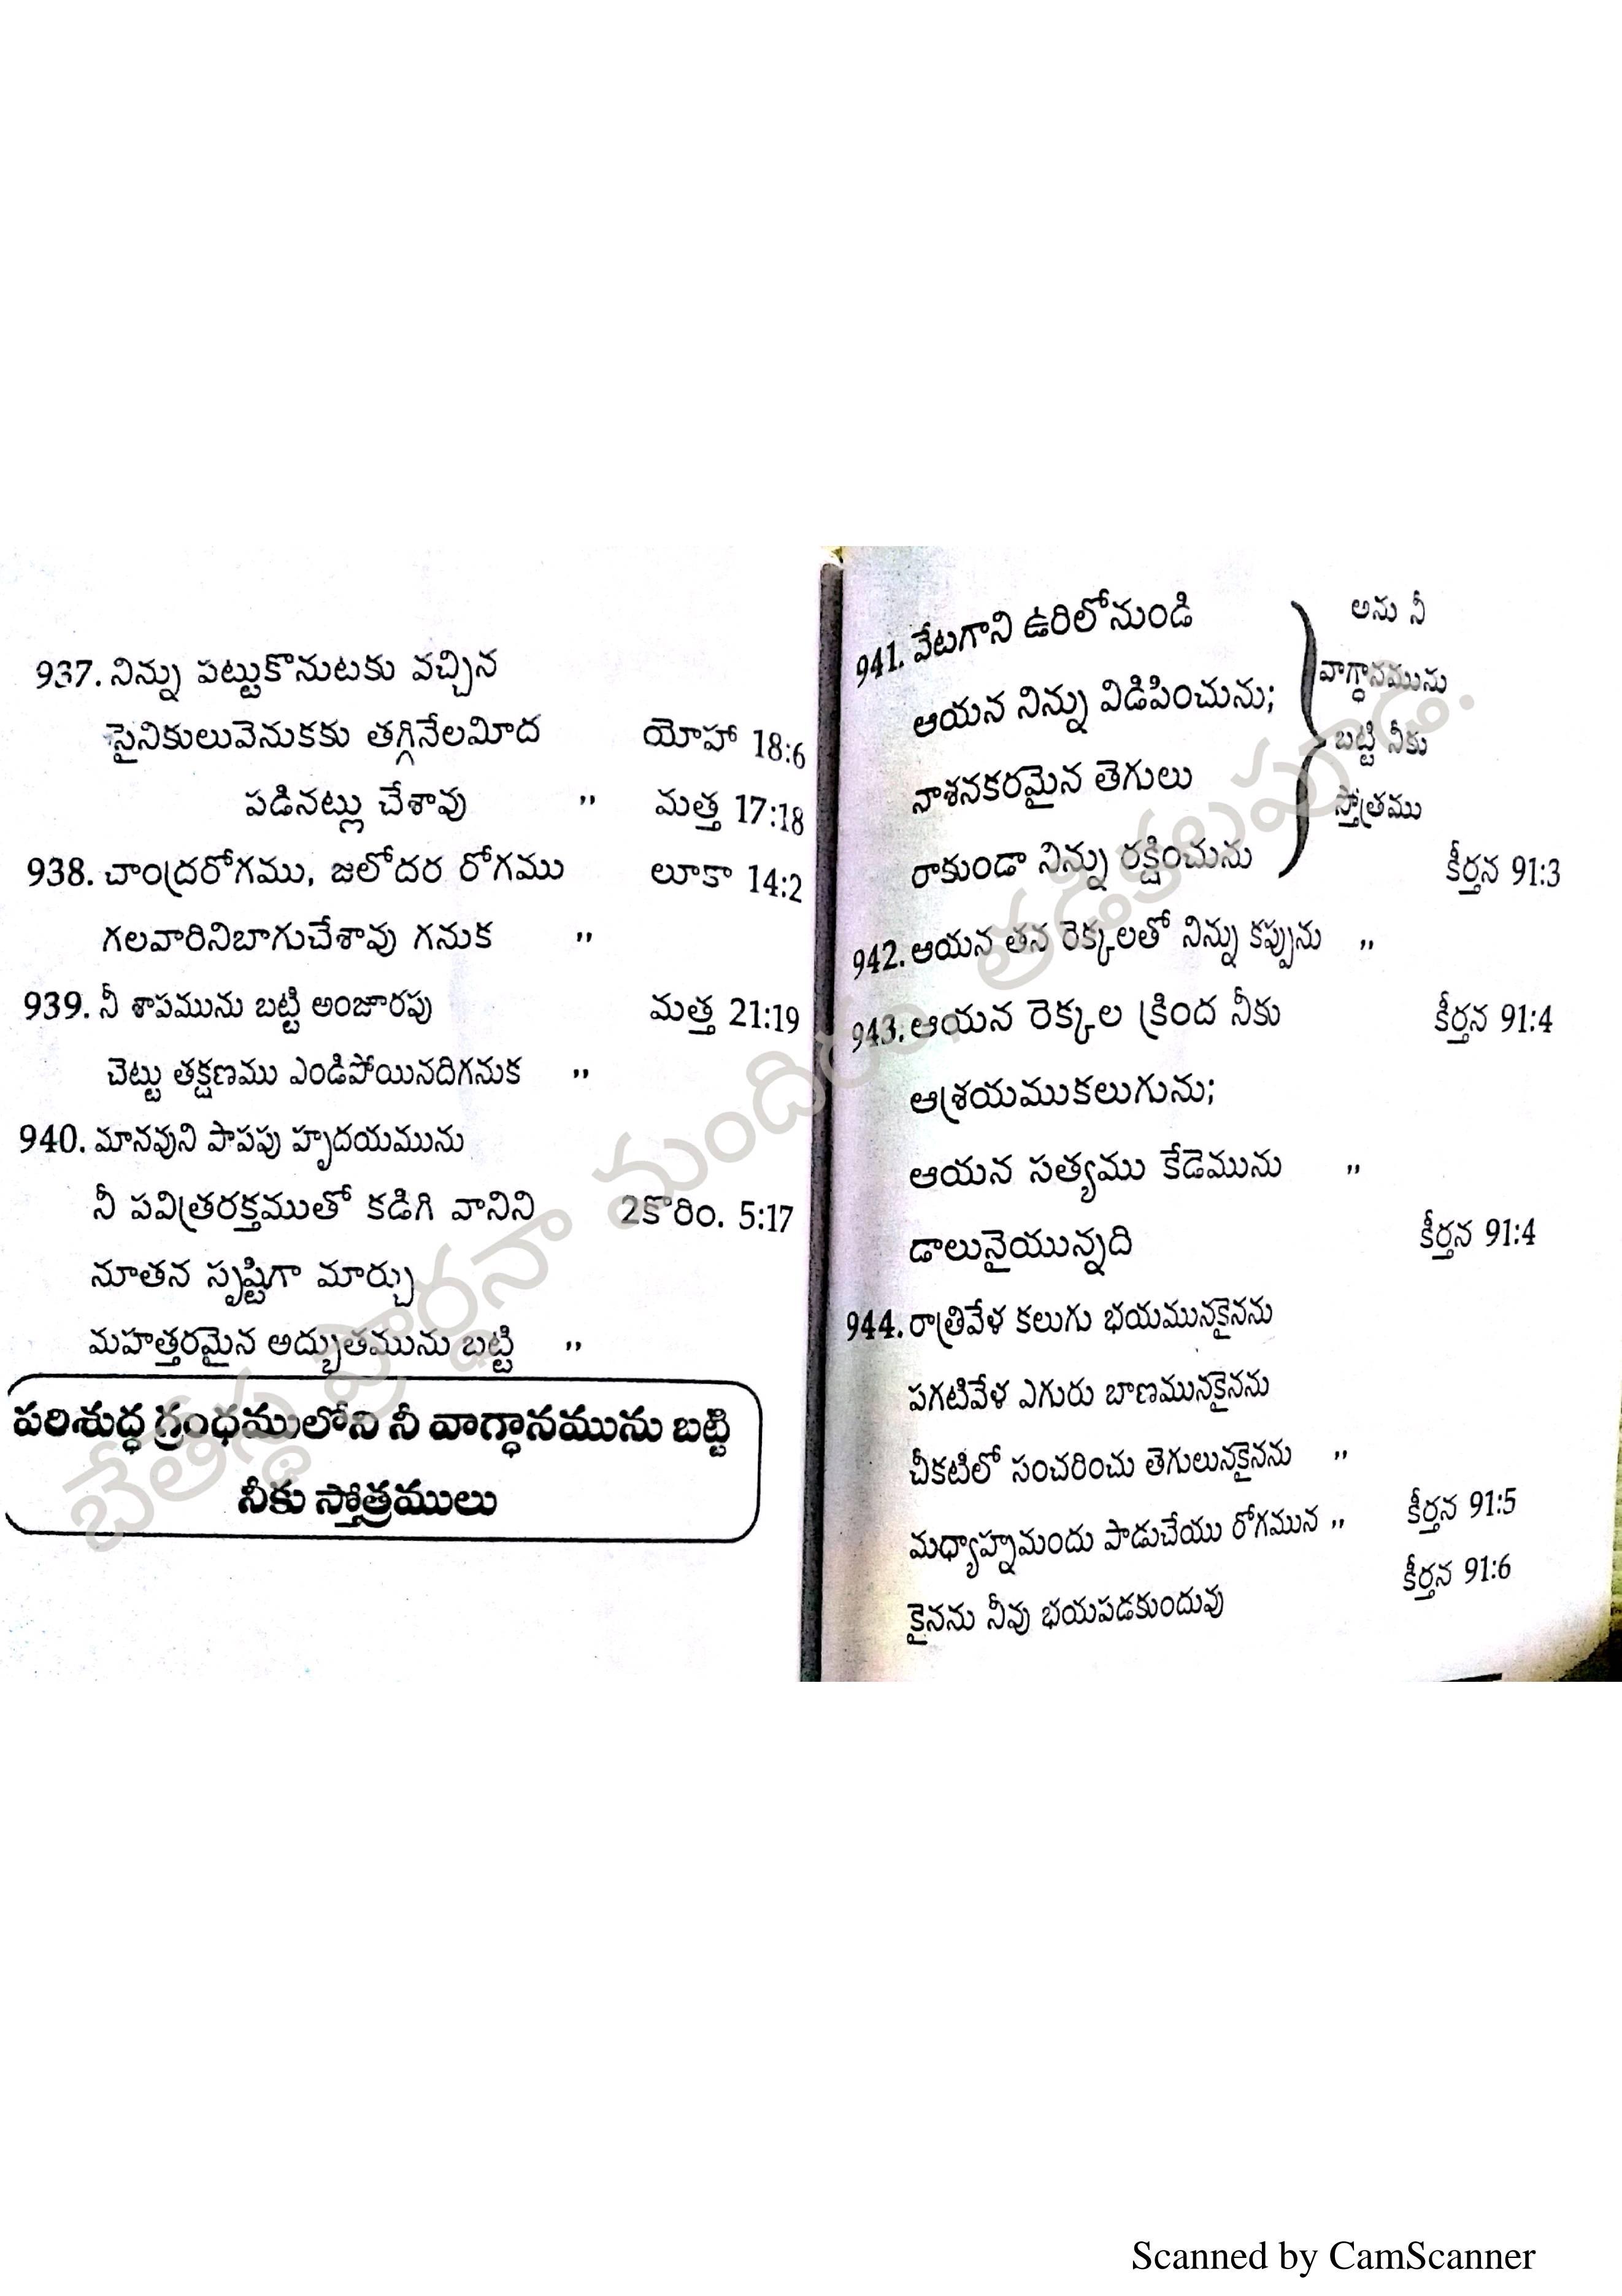 937. నిన్ను పట్టుకొనుటకు వచ్చిన
సైనికులువెనుకకు తగ్గినేలమీద యోహా 18:6
పడినట్లు చేశావు ,, మత్త 17:18
938. చాంద్రరోగము, జలోదర రోగము లూకా 14:2
గలవారినిబాగుచేశావు గనుక ,,
939. నీ శాపమును బట్టి అంజూరపు మత్త 21:19
చెట్టు తక్షణము ఎండిపోయినదిగనుక ,,
940. మానవుని పాపపు హృదయమును
నీ పవిత్రరక్తముతో కడిగి వానిని 2కొరిం. 5:17
నూతన సృష్టిగా మార్చు
మహత్తరమైన అద్భుతమును బట్టి ,,
పరిశుద్ధ గ్రంధములోని నీ వాగ్ధానమును బట్టి
నీకు స్తోత్రములు
941. వేటగాని ఉరిలోనుండి అను నీ
ఆయన నిన్ను విడిపించును; వాగ్ధానమును
బట్టి నీకు
నాశనకరమైన తెగులు స్తోత్రము
రాకుండా నిన్ను రక్షించును కీర్తన 91:3
942. ఆయన తన రెక్కలతో నిన్ను కప్పును ,,
943. ఆయన రెక్కల క్రింద నీకు కీర్తన 91:4
ఆశ్రయముకలుగును;
ఆయన సత్యము కేడెమును ,,
డాలునైయున్నది కీర్తన 91:4
944. రాత్రివేళ కలుగు భయమునకైనను
పగటివేళ ఎగురు బాణమునకైనను
చీకటిలో సంచరించు తెగులునకైనను ,,
మధ్యాహ్నమందు పాడుచేయు రోగమున ,, కీర్తన 91:5
కైనను నీవు భయపడకుందువు కీర్తన 91:6
బేతెస్థ ప్రార్థనా మందిరం, తడికలపూడి.
Scanned by CamScanner